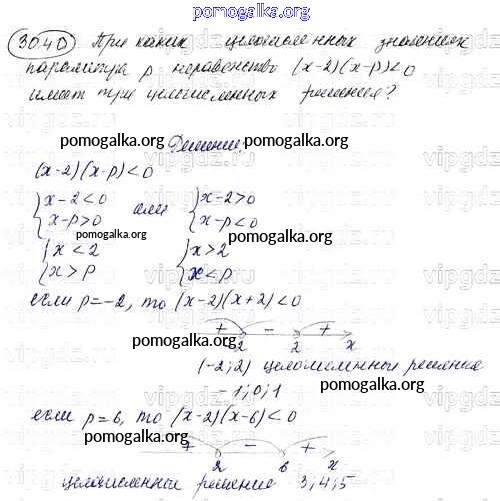 pomogalka.org
30.40 При каких целочисленных значениях
параметра p неравенство (x-2)(x-p)<0
имеет три целочисленных решения?
pomogalka.org pomogalka.org
Решение.
(x-2)(x-p)<0
x-2<0 или x-2>0
x-p>0 x-p<0
pomogalka.org pomogalka.org
x<2 x>2
x>p x<p
если p=-2, то (x-2)(x+2)<0
+ - +
-2 2 x
pomogalka.org
(-2;2) целочисленные решения
-1;0;1
pomogalka.org
если p=6, то (x-2)(x-6)<0
pomogalka.org
+ - +
2 6 x
целочисленные решения 3,4,5
pomogalka.org